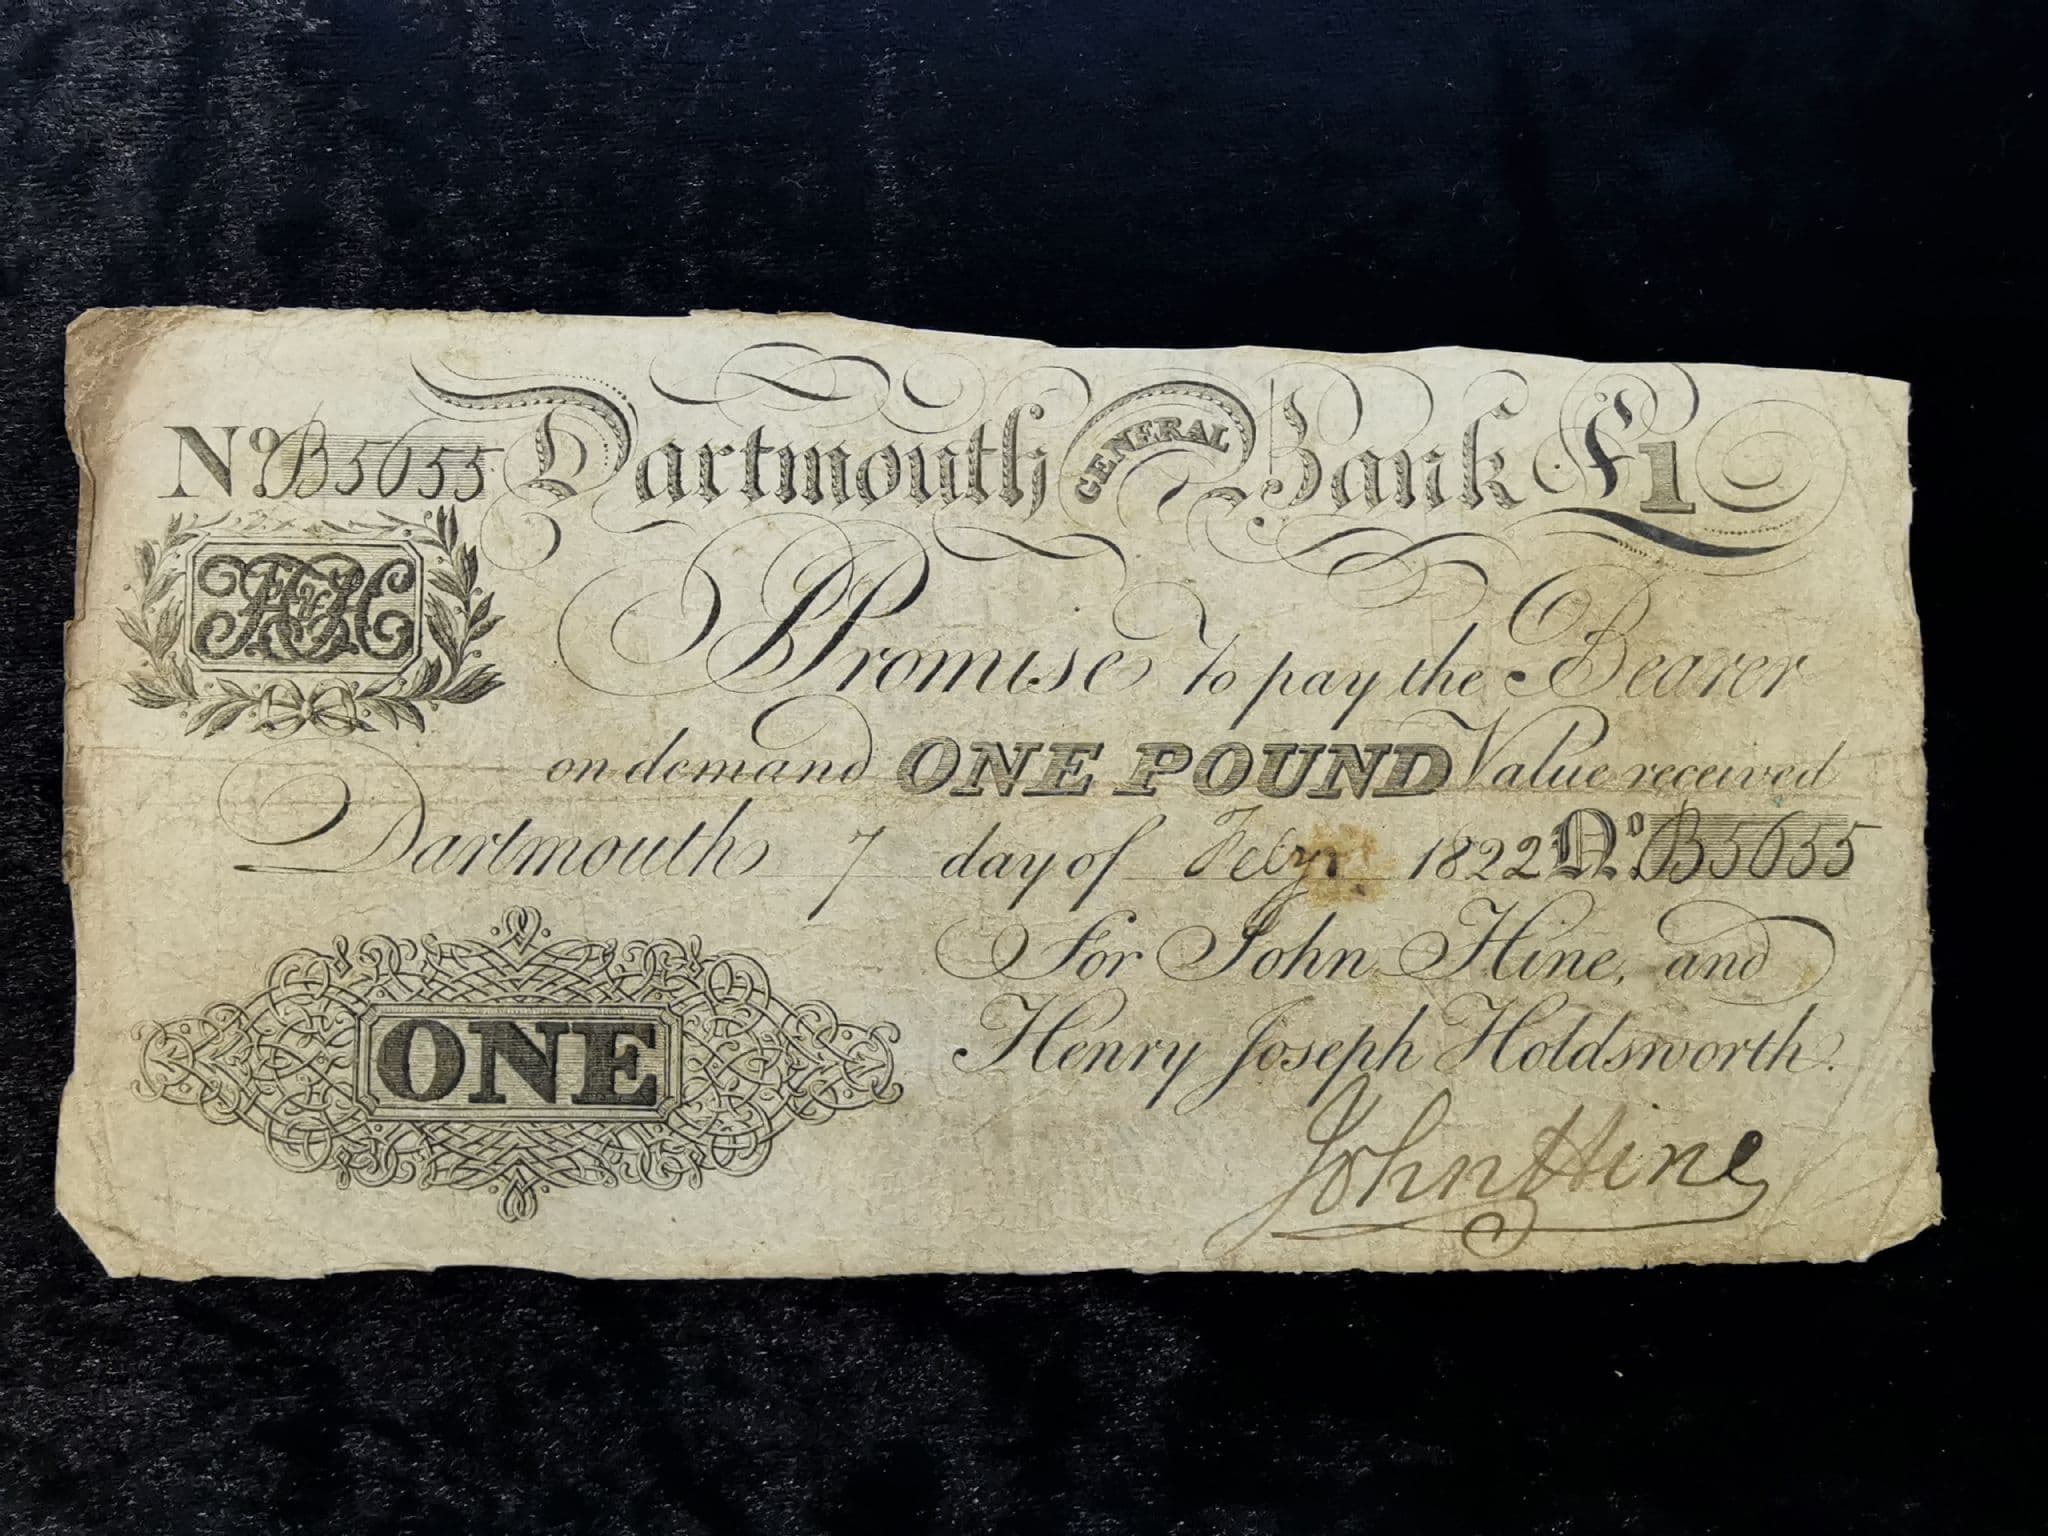 No. B5655 Dartmouth GENERAL Bank £1
I Promise to pay the Bearer
on demand ONE POUND Value received
Dartmouth 7 day of Feby 1822 No. B5655
For John Hine, and
Henry Joseph Holdsworth.
ONE
John Hine